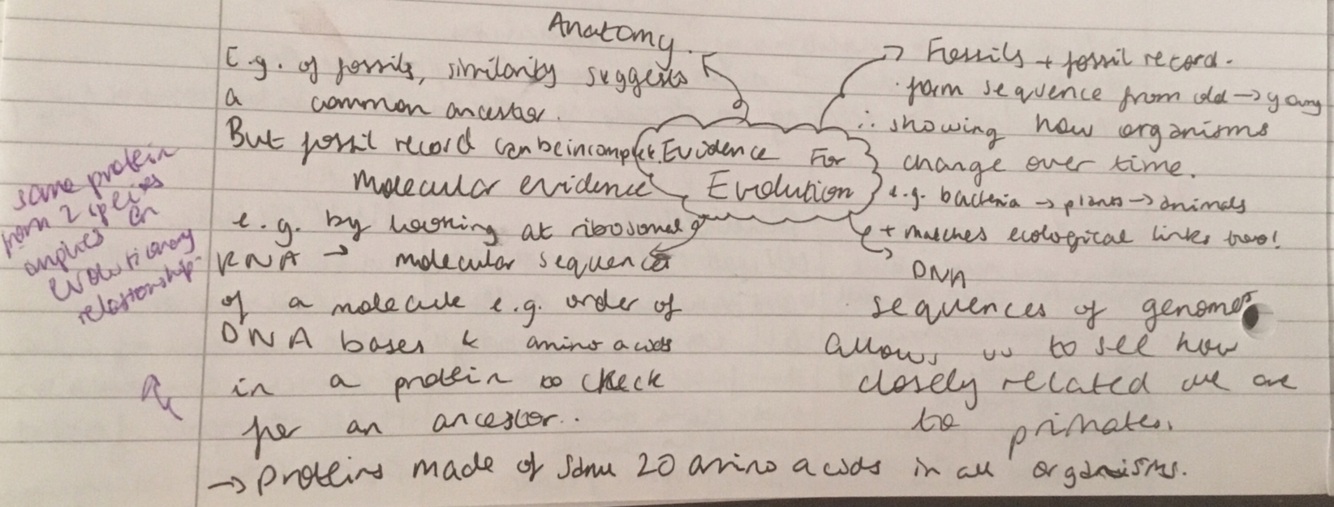 Anatomy.
E.g. of fossils, similarity suggests
a common ancestor.
But fossil record can be incomplete.
Evidence For
Evolution
→ Fossils + fossil record.
· form sequence from old → young
∴ showing how organisms
change over time.
e.g. bacteria → plants → animals
+ matches ecological links too!
Molecular evidence
e.g. by looking at ribosomal
RNA → molecular sequence
of a molecule e.g. order of
DNA bases & amino acids
in a protein to check
for an ancestor..
→ DNA
sequences of genomes
allows us to see how
closely related we are
to primates.
→ proteins made of same 20 amino acids in all organisms.
same protein
from 2 species
implies an
evolutionary
relationship.